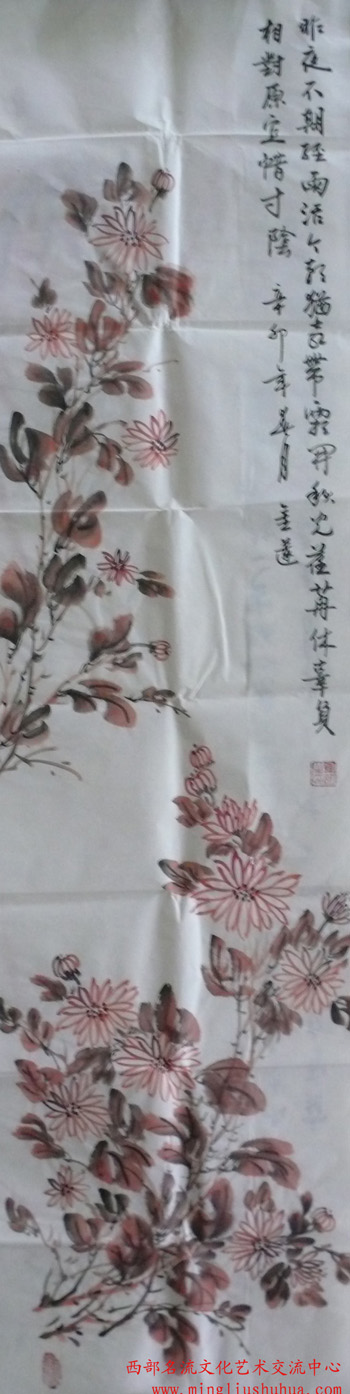 昨夜不期經雨活今朝猶喜帶霜開秋光荏苒休辜負
相對原宜惜寸陰 辛卯年春月
西部名流文化艺术交流中心
www.mingliushuhua.com